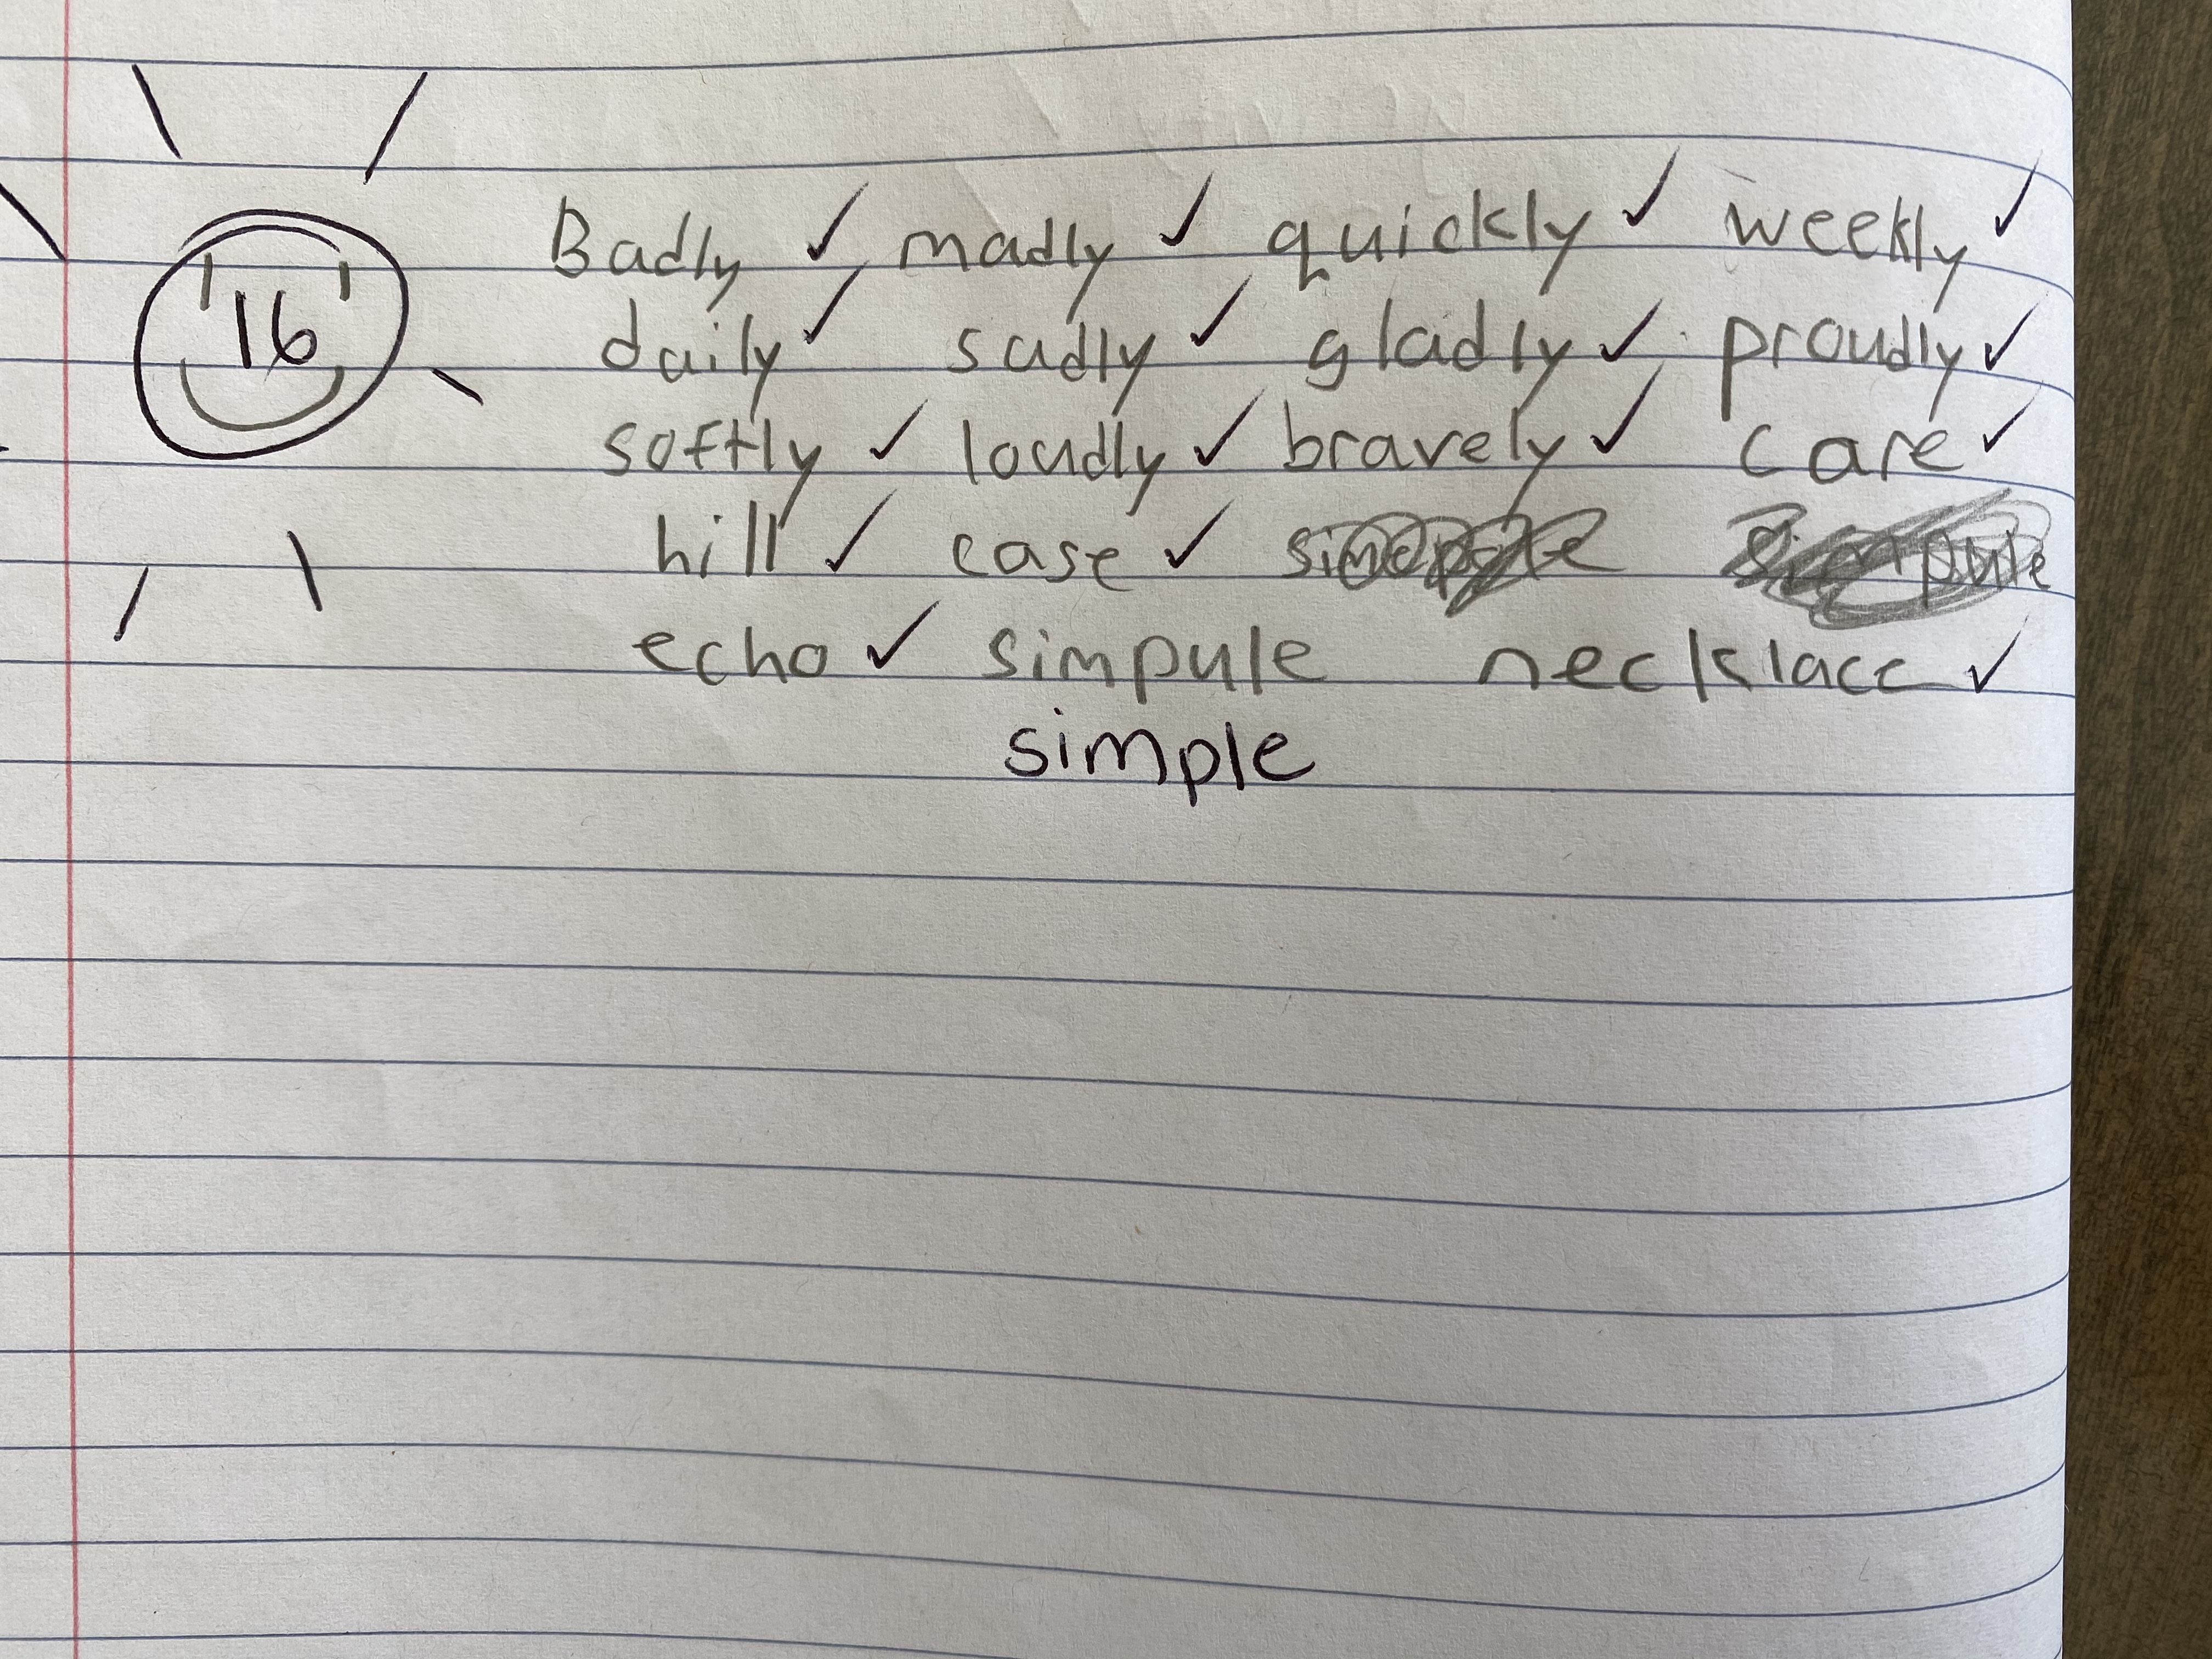 Badly ✓ madly ✓ quickly ✓ weekly ✓
16 daily ✓ sadly ✓ gladly ✓ proudly ✓
softly ✓ loudly ✓ bravely ✓ care ✓
hill ✓ case ✓
echo ✓ simpule necklace ✓
simple